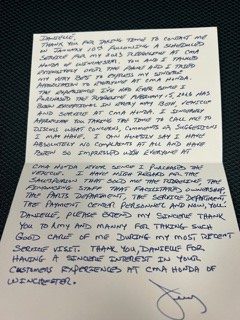 DANIELLE,
THANK YOU FOR TAKING TIME TO CONTACT ME
ON JANUARY 10TH FOLLOWING A SCHEDULED
SERVICE FOR MY 2013 RIDGELINE AT CMA
HONDA OF WINCHESTER. YOU AND I TALKED
EXTENSIVELY OVER THE PHONE AND I TRIED
MY VERY BEST TO EXPRESS MY SINCERE
APPRECIATION TO EVERYONE AT CMA HONDA.
THE EXPERIENCE I'VE HAD EVER SINCE I
PURCHASED THE RIDGELINE FEBRUARY 13, 2016 HAS
BEEN EXCEPTIONAL IN EVERY WAY BOTH, VEHICLE
AND SERVICE AT CMA HONDA. I SINCERELY
APPRECIATE YOU TAKING THE TIME TO CALL ME TO
DISCUSS WHAT CONCERNS, COMMENTS OR SUGGESTIONS
I MAY HAVE. I CAN HONESTLY SAY I HAVE
ABSOLUTELY NO COMPLAINTS AT ALL AND HAVE
BEEN SO IMPRESSED WITH EVERYONE AT
CMA HONDA EVER SINCE I PURCHASED THE
VEHICLE. I HAVE HIGH REGARD FOR THE
SALESPERSON THAT SOLD ME THE RIDGELINE, THE
FINANCING STAFF THAT FACILITATED OWNERSHIP,
THE PARTS DEPARTMENT, THE SERVICE DEPARTMENT,
THE PAYMENT CENTER PERSONNEL AND NOW, YOU.
DANIELLE, PLEASE EXTEND MY SINCERE THANK
YOU TO AMY AND MANNY FOR TAKING SUCH
GOOD CARE OF ME DURING MY MOST RECENT
SERVICE VISIT. THANK YOU, DANIELLE FOR
HAVING A SINCERE INTEREST IN YOUR
CUSTOMERS EXPERIENCES AT CMA HONDA OF
WINCHESTER.